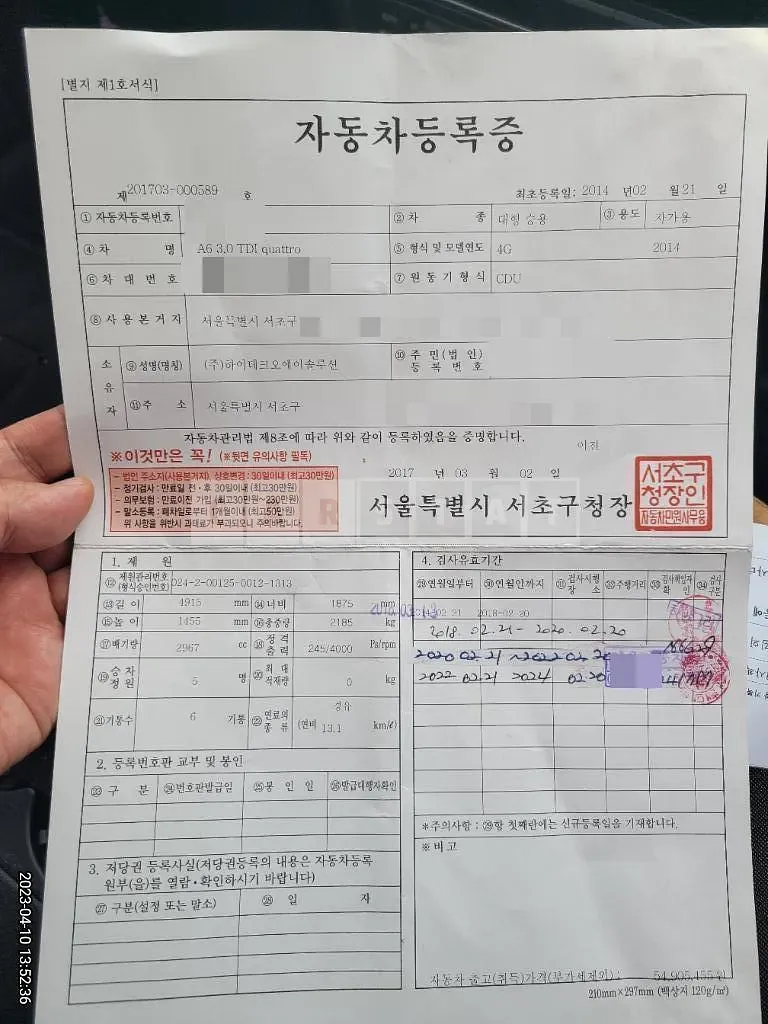 [별지 제1호서식]
자동차등록증
제201703-000589 호
최초등록일: 2014 년02 월21 일
① 자동차등록번호 ② 차 종 대형 승용 ③ 용도 자가용
④ 차 명 A6 3.0 TDI quattro ⑤ 형식 및 모델연도 4G 2014
⑥ 차 대 번 호 ⑦ 원 동 기 형 식 CDU
⑧ 사 용 본 거 지 서울특별시 서초구
소유자 ⑨ 성명(명칭) (주)하이테크오에이솔루션 ⑩ 주 민(법 인) 등 록 번 호
⑪ 주 소 서울특별시 서초구
자동차관리법 제8조에 따라 위와 같이 등록하였음을 증명합니다.
이전
※이것만은 꼭! (※뒷면 유의사항 필독)
- 법인 주소지(사용본거지), 상호변경 : 30일이내 (최고30만원)
- 정기검사 : 만료일 전·후 30일이내 (최고30만원)
- 의무보험 : 만료이전 가입 (최고30만원~230만원)
- 말소등록 : 폐차일로부터 1개월이내 (최고50만원)
위 사항을 위반시 과태료가 부과되오니 주의바랍니다.
2017 년 03 월 02 일
서울특별시 서초구청장
서초구
청장인
자동차민원사무용
1. 제 원
⑫ 제원관리번호 (형식승인번호) 024-2-00125-0012-1313
⑬ 길 이 4915 mm ⑭ 너비 1875 mm
⑮ 높 이 1455 mm ⑯ 총중량 2185 kg
⑰ 배기량 2967 cc ⑱ 정격출력 245/4000 Ps/rpm
⑲ 승차정원 5 명 ⑳ 최대적재량 0 kg
㉑ 기통수 6 기통 ㉒ 연료의 종류 경유 (연비 13.1 km/ℓ)
2. 등록번호판 교부 및 봉인
㉓ 구 분 ㉔ 번호판발급일 ㉕ 봉 인 일 ㉖ 발급대행자확인
3. 저당권 등록사실(저당권등록의 내용은 자동차등록
원부(을)를 열람·확인하시기 바랍니다)
㉗ 구분(설정 또는 말소) ㉘ 일 자
4. 검사유효기간
㉙ 연월일부터 ㉚ 연월일까지 ㉛ 검사시행장소 ㉜ 주행거리 ㉝ 검사책임자확인 ㉞ 검사구분
2018-02-20
2018. 02.21- 2020. 02.20
2020 02 21 ~2022 02 20
2022 02 21 2024 02 20
*주의사항 : ㉙항 첫째란에는 신규등록일을 기재합니다.
※ 비고
자동차 출고(취득)가격(부가세제외) : 54,905,455원
210mm×297mm (백상지 120g/㎡)
2023-04-10 13:52:36